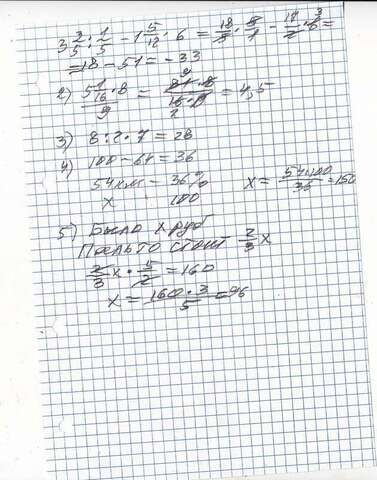 3 3/5 : 1/5 - 1 5/12 · 6 = 18/5 · 5/1 - 17/2 · 6 =
= 18 - 51 = -33
2) 5 1/16 · 8 / 9 = 81 · 8 / 16 · 9 = 4,5
3) 8 : 2 · 7 = 28
4) 100 - 64 = 36
54 км - 36%
x 100
x = 54·100/36 = 150
5) Было x руб
Пальто стоит - 2/3 x
2/3 x · 5/2 = 160
x = 160 · 3 / 5 = 96